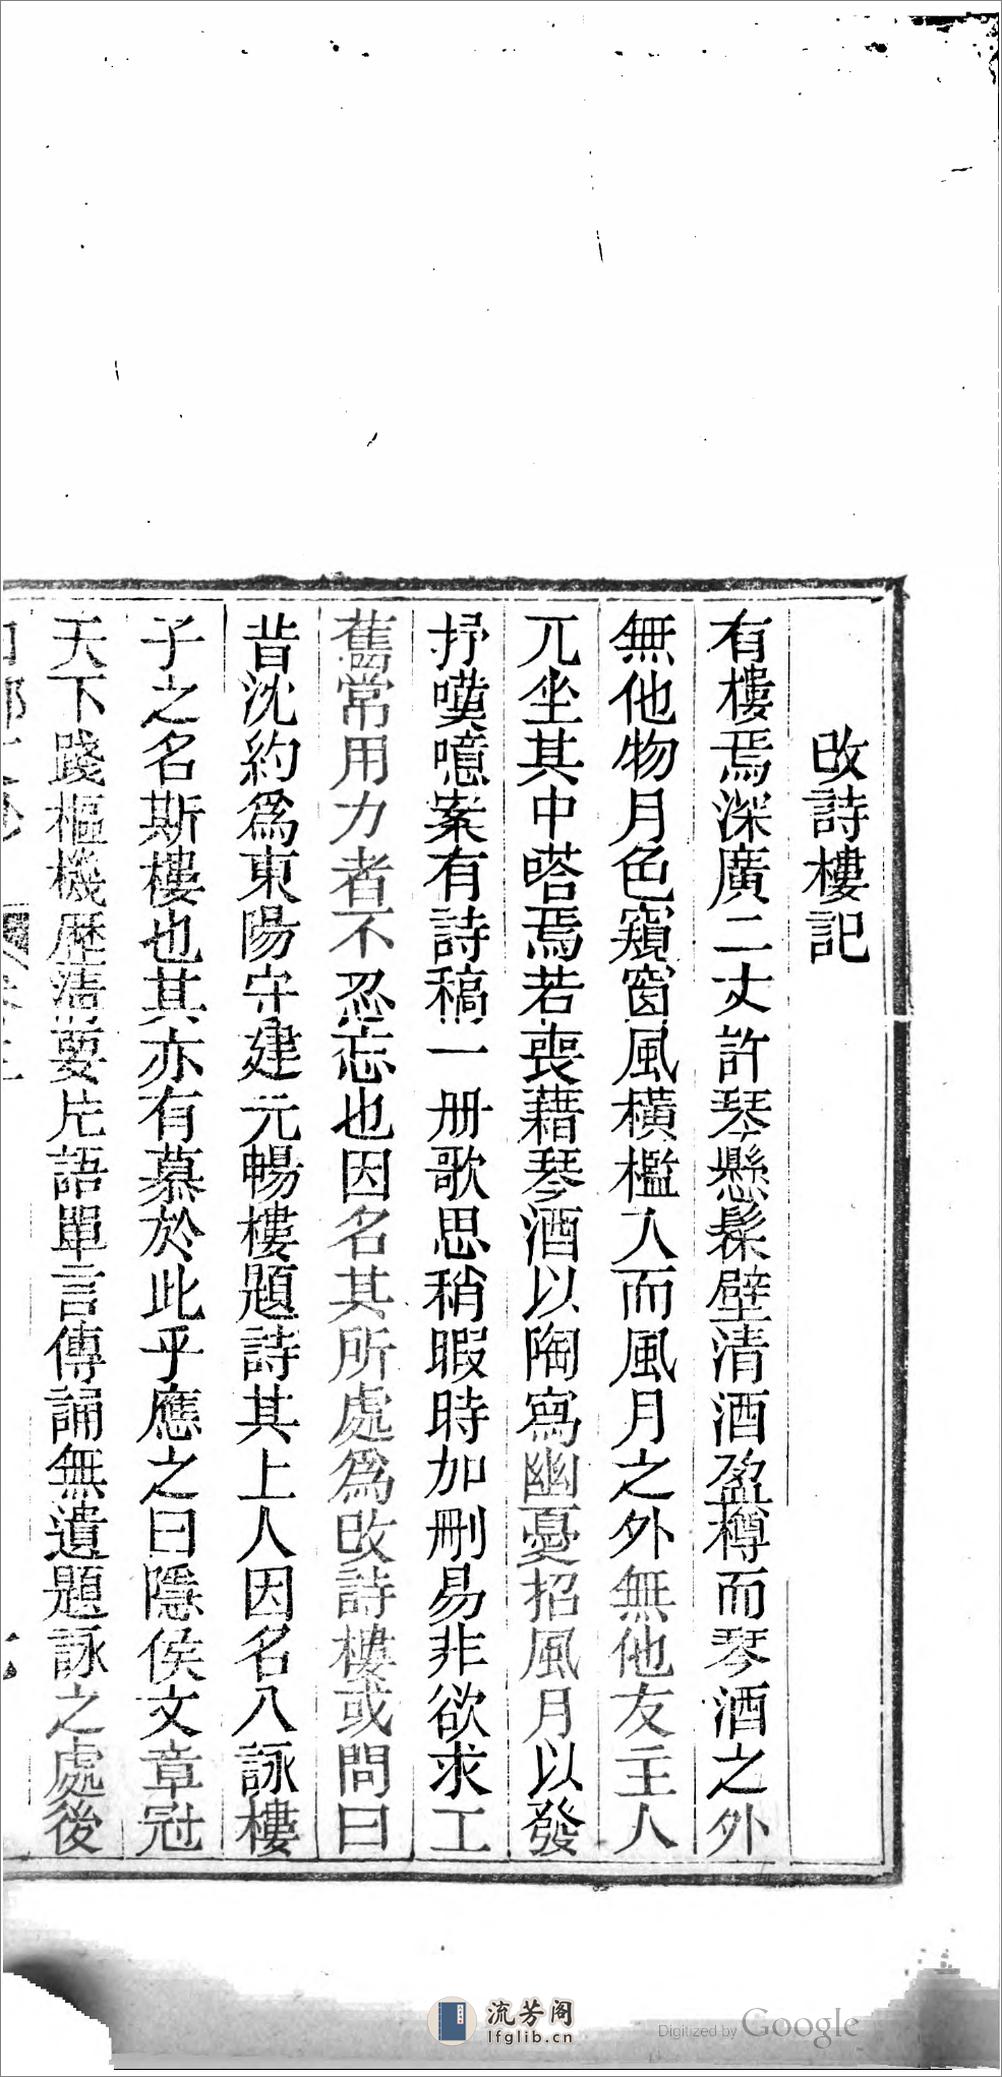 改詩樓記
有樓焉深廣二丈許琴懸髹壁清酒盈樽而琴酒之外
無他物月色窺窗風橫檻人而風月之外無他友主人
兀坐其中嗒焉若喪藉琴酒以陶寫幽憂招風月以發
抒嘆噫案有詩稿一册歌思稍暇時加刪易非欲求工
舊常用力者不忍忘也因名其所處爲改詩樓或問曰
昔沈約爲東陽守建元暢樓題詩其上人因名八詠樓
子之名斯樓也其亦有慕於此乎應之曰隱侯文章冠
天下踐樞機歷清要片語單言傳誦無遺題詠之處後
流芳阁
lfglib.cn
Digitized by Google